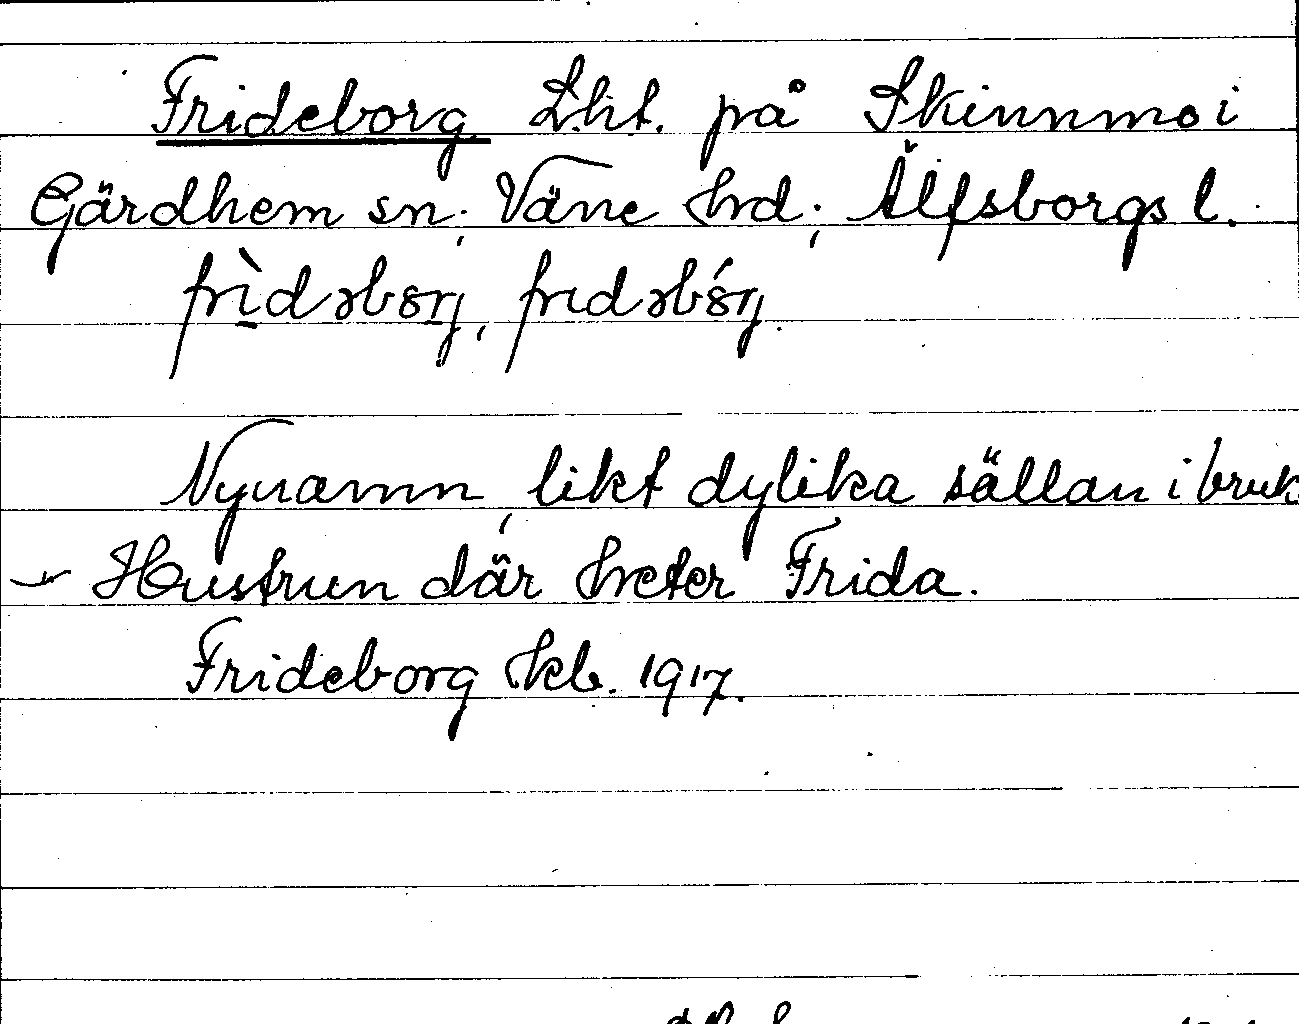 Frideborg Lht. på Skinnmo i
Gärdhem sn; Väne hrd; Älfsborgs l.
frìdəbɔrj, fridəbɔ́rj.
Nynamn, likt dylika sällan i bruk.
Hustrun där heter Frida.
Frideborg kb. 1917.